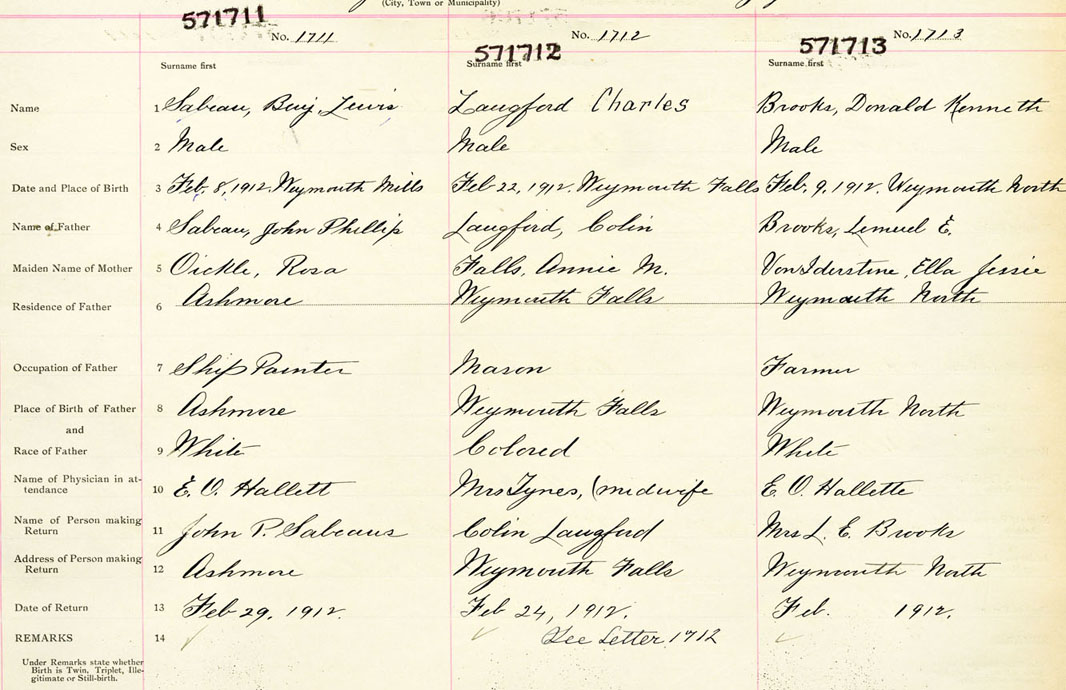 (City, Town or Municipality)
571711 No. 1711 571712 No. 1712 571713 No. 1713
Surname first Surname first Surname first
Name 1 Sabeau, Benj. Lewis Langford Charles Brooks, Donald Kenneth
Sex 2 Male Male Male
Date and Place of Birth 3 Feb. 8, 1912. Weymouth Mills Feb 22, 1912. Weymouth Falls Feb. 9, 1912. Weymouth North
Name of Father 4 Sabeau, John Phillip Langford, Colin Brooks, Lemuel E.
Maiden Name of Mother 5 Oickle, Rosa Falls, Annie M. VonIderstine, Ella Jessie
Residence of Father 6 Ashmore Weymouth Falls Weymouth North
Occupation of Father 7 Ship Painter Mason Farmer
Place of Birth of Father 8 Ashmore Weymouth Falls Weymouth North
and
Race of Father 9 White Colored White
Name of Physician in at-
tendance 10 E. O. Hallett Mrs Tynes, (midwife E. O. Hallette
Name of Person making
Return 11 John P. Sabeaus Colin Langford Mrs L. E. Brooks
Address of Person making
Return 12 Ashmore Weymouth Falls Weymouth North
Date of Return 13 Feb 29, 1912. Feb 24, 1912. Feb. 1912.
REMARKS 14 See Letter 1712
Under Remarks state whether
Birth is Twin, Triplet, Ille-
gitimate or Still-birth.